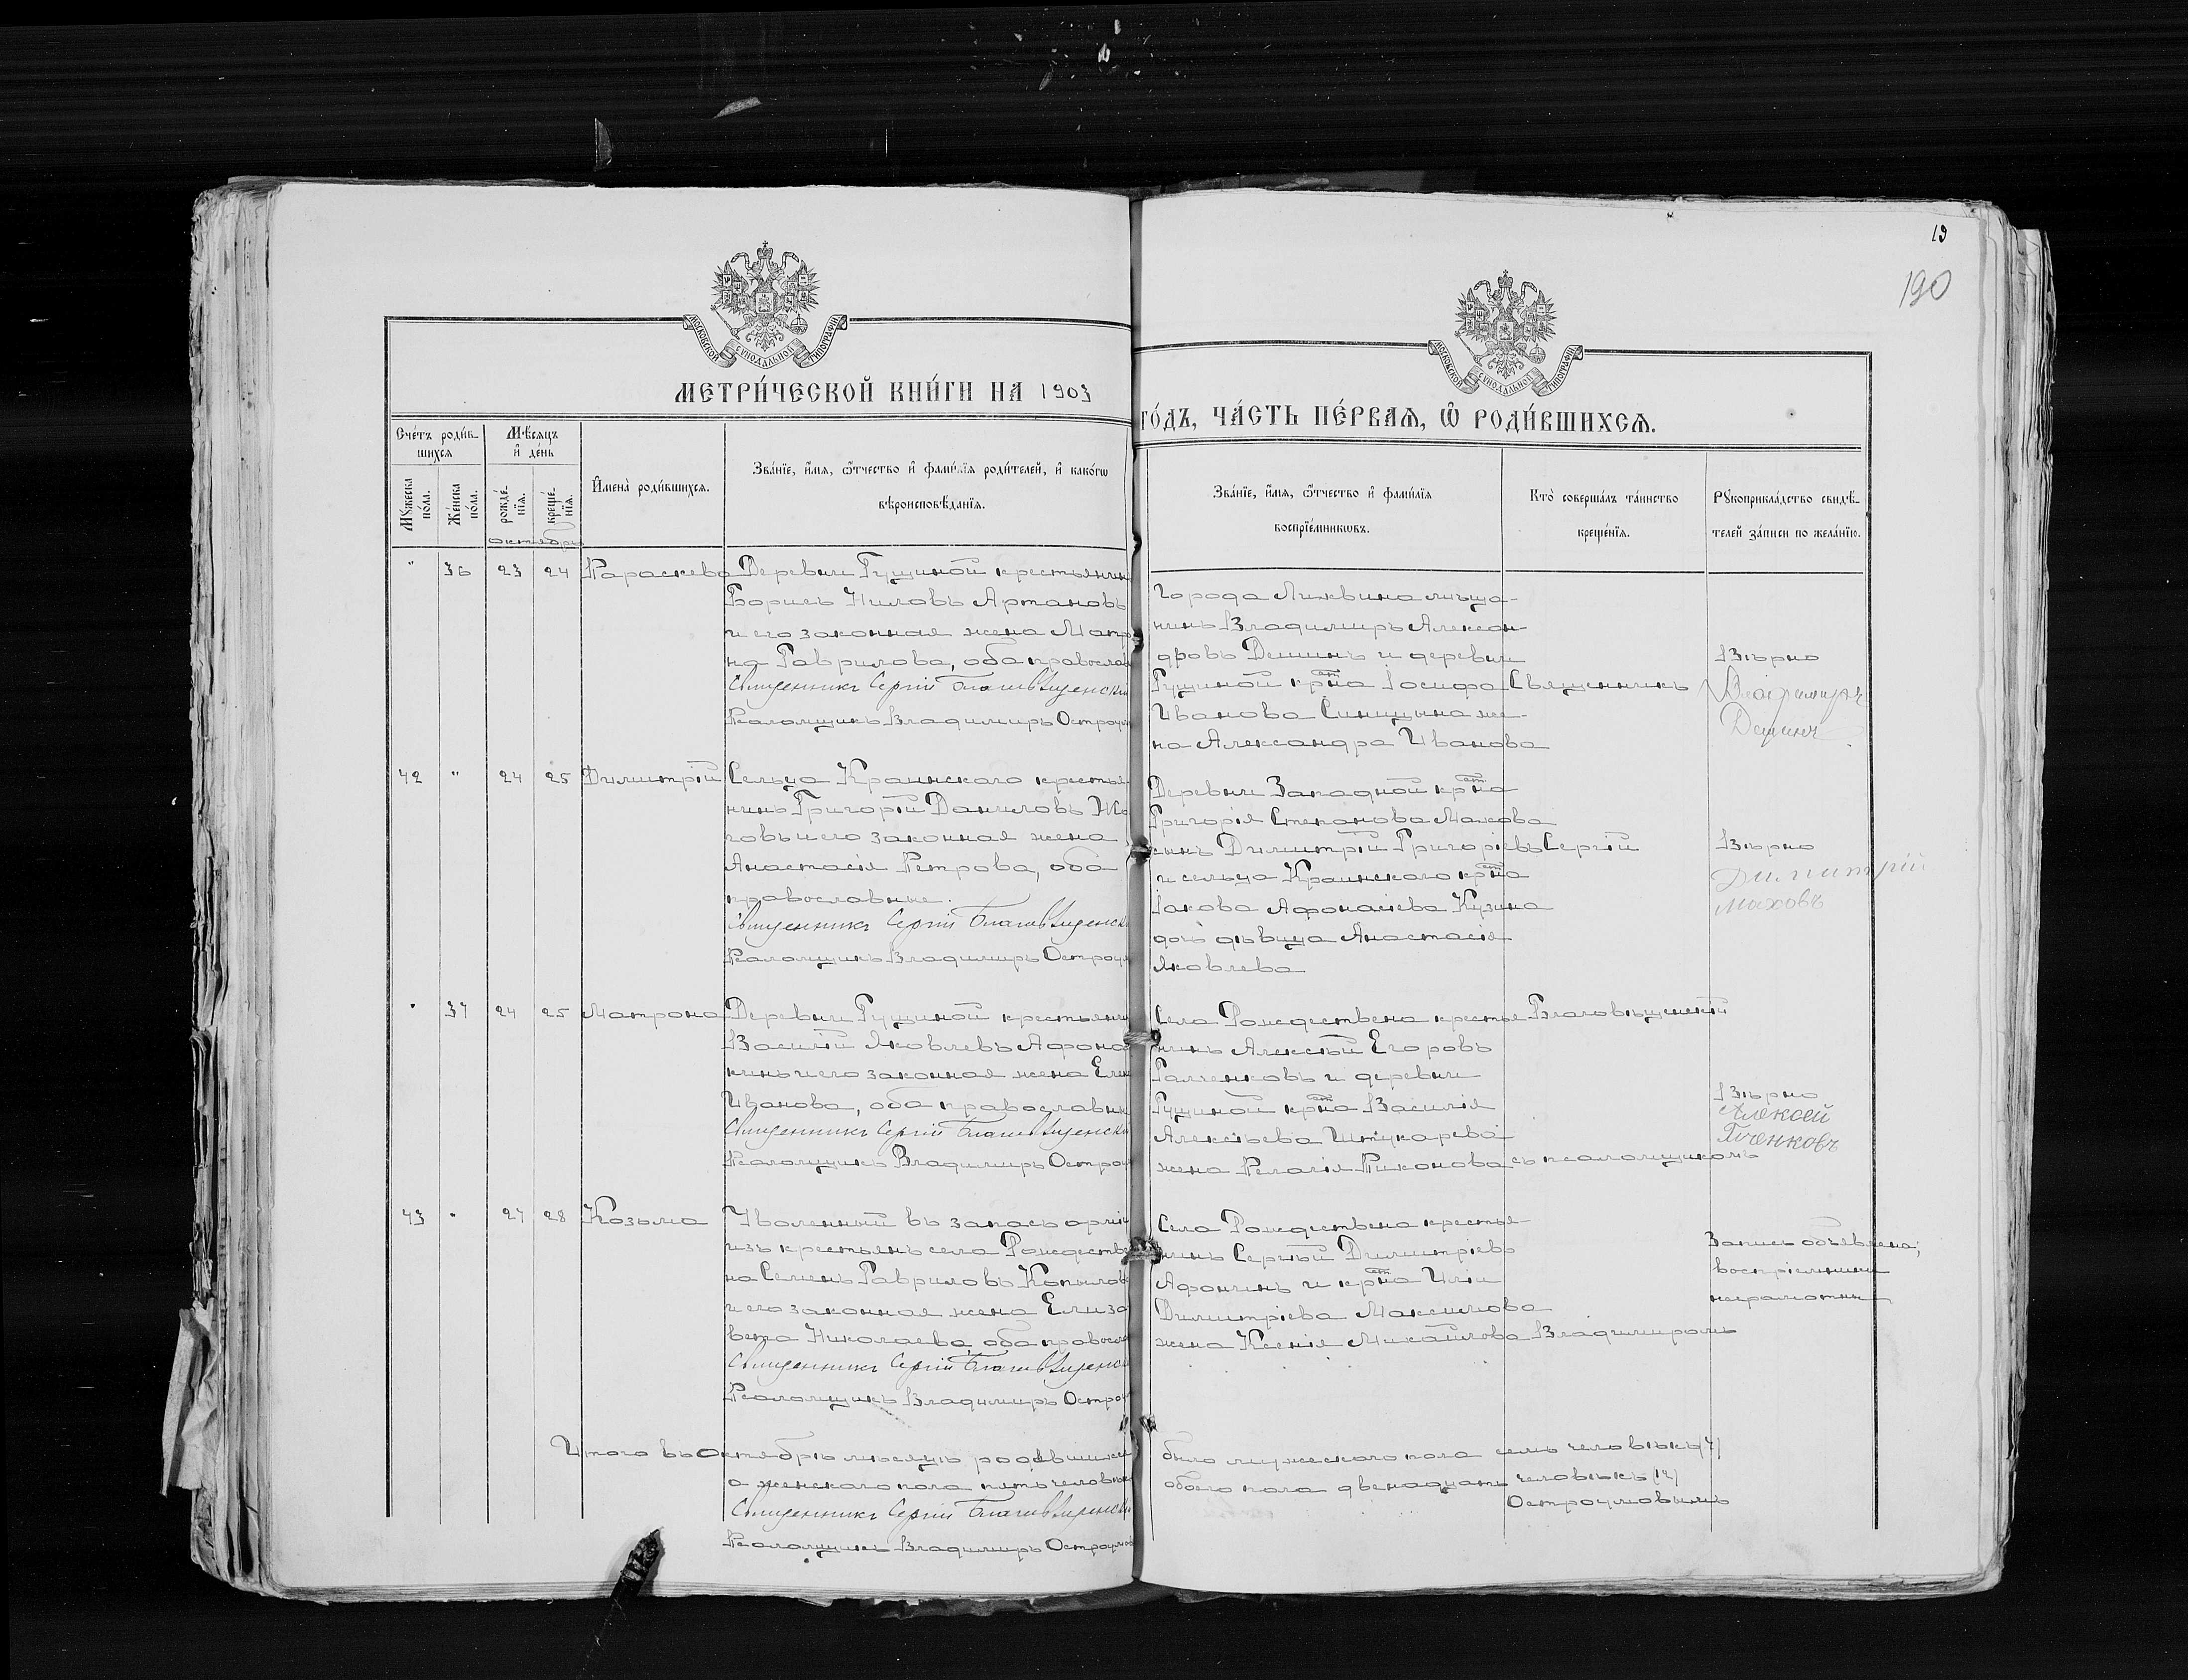 19
190
МОСКОВСКОЙ СѴНОДАЛЬНОЙ ТИПОГРАФІИ
МОСКОВСКОЙ СѴНОДАЛЬНОЙ ТИПОГРАФІИ
МЕТРИ́ЧЕСКОЙ КНИ́ГИ НА 1903
ГО́ДЪ, ЧА́СТЬ ПЕ́РВАѦ, Ѡ҆ РОДИ́ВШИХСѦ.
Сче́тъ роди́в-
шихсѧ
Мꙋ́жеска по́ла.
Же́нска по́ла.
Мѣ́сѧцъ
и҆ де́нь
рожде́-нїѧ.
креще́-нїѧ.
октября
И҆мена̀ роди́вшихсѧ.
Зва́нїе, и҆́мѧ, ѻ҆́тчество и҆ фами́лїѧ роди́телей, и҆ како́гѡ
вѣроисповѣ́данїѧ.
Зва́нїе, и҆́мѧ, ѻ҆́тчество и҆ фами́лїѧ
воспрїе́мникѡвъ.
Кто̀ соверша́лъ та́инство
креще́нїѧ.
Рꙋкоприкла́дство свидѣ́-
телей за́писи по жела́нїю.
" 36 23 24 Параскева Деревни Гущиной крестьянин
Борисъ Ниловъ Артановъ
и его законная жена Матр
на Гаврилова, оба православ
Священникъ Сергій Благовѣщенскій
Псаломщикъ Владимиръ Остроум
Города Лихвина мѣща-
нинъ Владимиръ Алексан
дровъ Дешинъ и деревни
Гущиной кр-на Іосифа
Иванова Синицына же-
на Александра Иванова
Священникъ
Вѣрно
Владимиръ
Дешинъ
42 " 24 25 Димитрій Сельца Краинскаго крестья
нинъ Григорій Даниловъ
говъ и его законная жена
Анастасія Петрова, оба
православные.
Священникъ Сергій Благовѣщенск
Псаломщикъ Владимиръ Остроум
Деревни Западной кр-на
Григорія Степанова Махова
сынъ Димитрій Григорьевъ
и сельца Краинскаго кр-на
Іакова Афонасіева Кузина
дочь дѣвица Анастасія
Яковлева
Сергій
Вѣрно
Димитрій
Маховъ
" 37 24 25 Матрона Деревни Гущиной крестьянин
Василій Яковлевъ Афона
кинъ и его законная жена Елен
Иванова, оба православны
Священникъ Сергій Благовѣщенскій
Псаломщикъ Владимиръ Остроу
Села Рождествена крестья
нинъ Алексѣй Егоровъ
и деревни
Гущиной кр-на Василія
Алексѣева Штукарева
жена Пелагія Никонова
Благовѣщенскій
съ псаломщикомъ
Вѣрно
Алексѣй
43 " 27 28 Козьма Уволенный въ запасъ арміи
изъ крестьянъ села Рождестве
на Семенъ Гавриловъ Копылов
и его законная жена Елиза
вета Николаева, оба правосла
Священникъ Сергій Благовѣщенск
Псаломщикъ Владимиръ Остроу
Села Рождествена крестья-
нинъ Сергѣй Димитріевъ
Афонинъ и кр-на Иліи
Димитріева Максимова
жена Ксенія Михайлова
Владимиромъ
Запись объявлена;
воспріемники
неграмотны
Итого въ Октябрѣ мѣсяцѣ родившихся
было мужескаго пола семь человѣкъ (7)
а женскаго пола пять человѣкъ
обоего пола двенадцать человѣкъ (12)
Остроумовымъ
Священникъ Сергій Благовѣщенскій
Псаломщикъ Владимиръ Остроумов